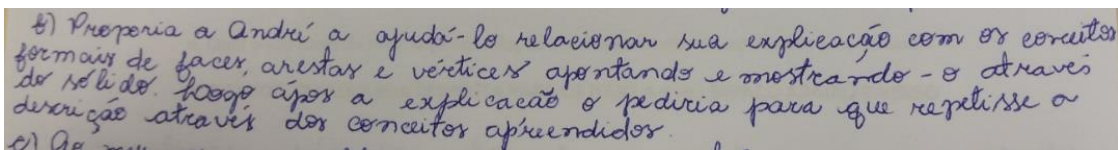 b) Proporia a André a ajudá-lo relacionar sua explicação com os conceitos
formais de faces, arestas e vértices apontando e mostrando-o através
do sólido. Logo após a explicacão o pediria para que repetisse a
descrição através dos conceitos apreendidos.
c) Ao